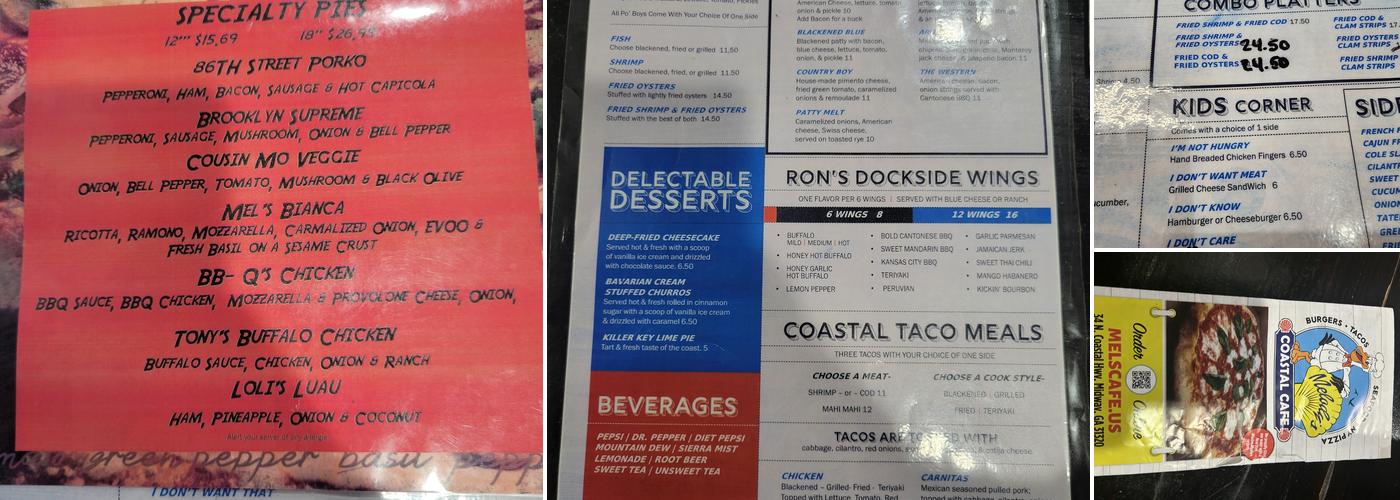 SPECIALTY PIES
12"" $15,69 18" $26,98
86TH STREET PORKO
PEPPERONI, HAM, BACON, SAUSAGE & HOT CAPICOLA
BROOKLYN SUPREME
PEPPERONI, SAUSAGE, MUSHROOM, ONION & BELL PEPPER
COUSIN MO VEGGIE
ONION, BELL PEPPER, TOMATO, MUSHROOM & BLACK OLIVE
MEL'S BIANCA
RICOTTA, RAMONO, MOZZARELLA, CARMALIZED ONION, EVOO &
FRESH BASIL ON A SESAME CRUST
BB- Q'S CHICKEN
BBQ SAUCE, BBQ CHICKEN, MOZZARELLA & PROVOLONE CHEESE, ONION,
TONY'S BUFFALO CHICKEN
BUFFALO SAUCE, CHICKEN, ONION & RANCH
LOLI'S LUAU
HAM, PINEAPPLE, ONION & COCONUT
Alert your server of any allergie
green pepper basil pepp
I DON'T WANT THAT
All Po' Boys Come With Your Choice Of One Side
FISH
Choose blackened, fried or grilled 11,50
SHRIMP
Choose blackened, fried, or grilled 11.50
FRIED OYSTERS
Stuffed with lightly fried oysters 14.50
FRIED SHRIMP & FRIED OYSTERS
Stuffed with the best of both 14.50
American Cheese, lettuce, tomato,
onion & pickle 10
Add Bacon for a buck
BLACKENED BLUE
Blackened patty with bacon,
blue cheese, lettuce, tomato,
onion, & pickle 11
COUNTRY BOY
House-made pimento cheese,
fried green tomato, caramelized
onions & remoulade 11
PATTY MELT
Caramelized onions, American
cheese, Swiss cheese,
served on toasted rye 10
jack cheese, & jalapeno bacon 11
THE WESTERN
American cheese, bacon,
onion strings served with
Cantonese BBQ 11
DELECTABLE
DESSERTS
DEEP-FRIED CHEESECAKE
Served hot & fresh with a scoop
of vanilla ice cream and drizzled
with chocolate sauce. 6.50
BAVARIAN CREAM
STUFFED CHURROS
Served hot & fresh rolled in cinnamon
sugar with a scoop of vanilla ice cream
& drizzled with caramel 6.50
KILLER KEY LIME PIE
Tart & fresh taste of the coast. 5
BEVERAGES
PEPSI | DR. PEPPER | DIET PEPSI
MOUNTAIN DEW | SIERRA MIST
LEMONADE | ROOT BEER
SWEET TEA | UNSWEET TEA
RON'S DOCKSIDE WINGS
ONE FLAVOR PER 6 WINGS | SERVED WITH BLUE CHEESE OR RANCH
6 WINGS 8 12 WINGS 16
• BUFFALO
MILD | MEDIUM | HOT
• HONEY HOT BUFFALO
• HONEY GARLIC
HOT BUFFALO
• LEMON PEPPER
• BOLD CANTONESE BBQ
• SWEET MANDARIN BBQ
• KANSAS CITY BBQ
• TERIYAKI
• PERUVIAN
• GARLIC PARMESAN
• JAMAICAN JERK
• SWEET THAI CHILI
• MANGO HABANERO
• KICKIN' BOURBON
COASTAL TACO MEALS
THREE TACOS WITH YOUR CHOICE OF ONE SIDE
CHOOSE A MEAT-
SHRIMP – or – COD 11
MAHI MAHI 12
CHOOSE A COOK STYLE-
BLACKENED | GRILLED
FRIED | TERIYAKI
TACOS ARE TOPPED WITH
cabbage, cilantro, red onions,
CHICKEN
Blackened - Grilled- Fried - Teriyaki
Topped with Lettuce, Tomato, Red
CARNITAS
Mexican seasoned pulled pork;
topped with cabbage, cilantro,
COMBO PLATTERS
FRIED SHRIMP & FRIED COD 17.50
FRIED SHRIMP &
FRIED OYSTERS 24.50
FRIED COD &
FRIED OYSTERS 24.50
FRIED COD &
CLAM STRIPS
FRIED OYSTERS
CLAM STRIPS
FRIED SHRIMP
CLAM STRIPS
Shrimp 4.50
cucumber,
KIDS CORNER
Comes with a choice of 1 side
I'M NOT HUNGRY
Hand Breaded Chicken Fingers 6.50
I DON'T WANT MEAT
Grilled Cheese SandWich 6
I DON'T KNOW
Hamburger or Cheeseburger 6.50
I DON'T CARE
SID
FRENCH F
CAJUN F
COLE SL
CILANT
SWEET
CUCUM
ONION
TATE
BURGERS • TACOS
Melody's
COASTAL CAFE
PIZZA
Order Online
MELSCAFE.US
34 N. Coastal Hwy. Midway, GA 31320